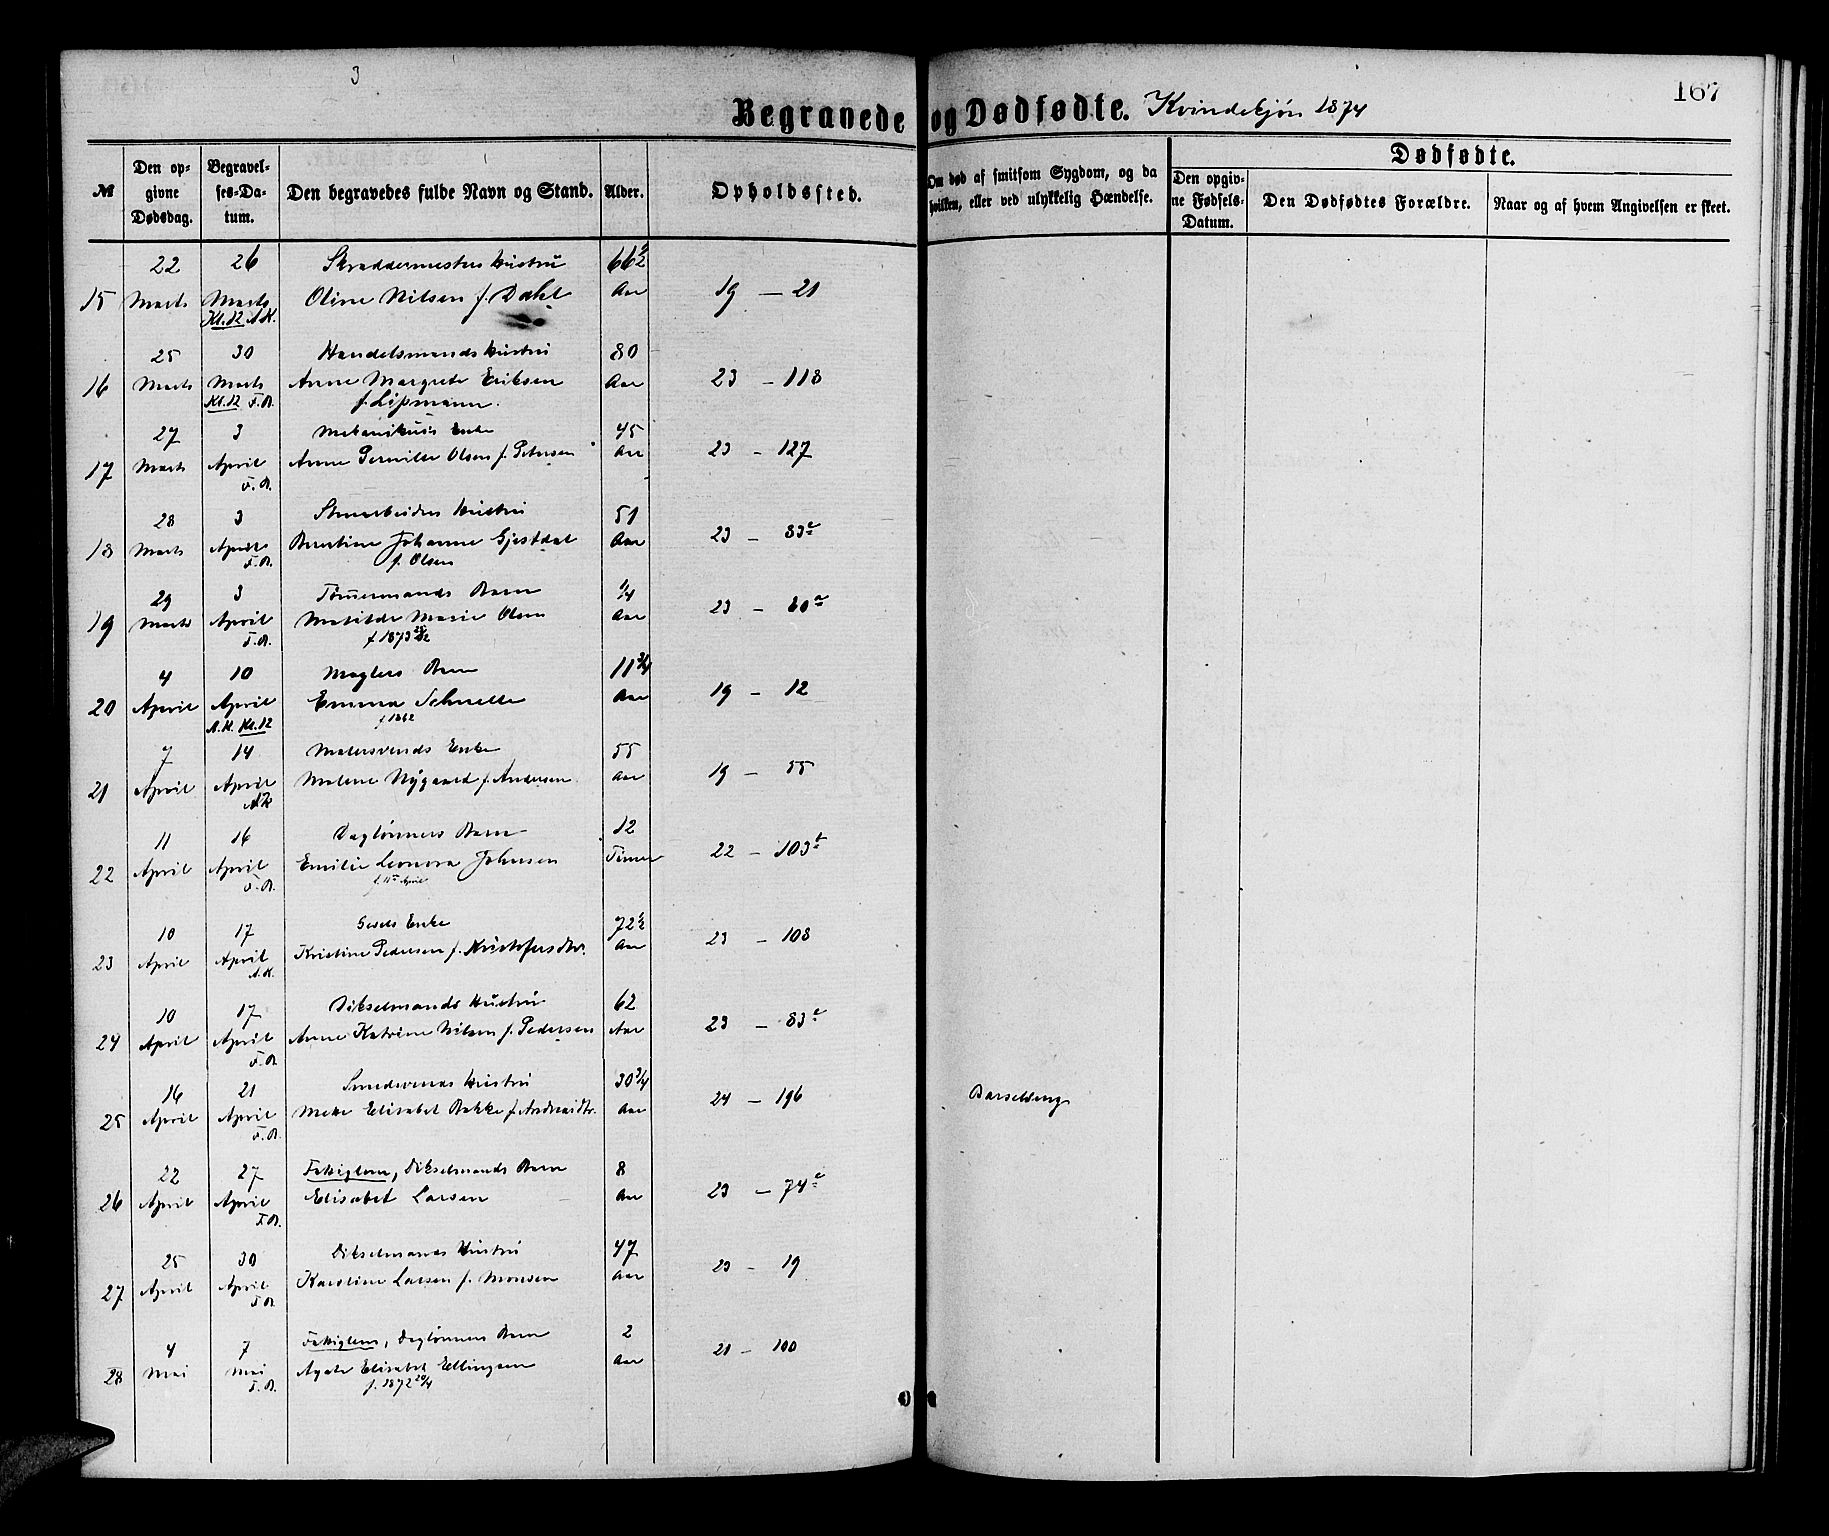 3
167
Begravede og Dødfødte. Kvindekjøn 1874
№
Den opgivne Dødsdag.
Begravelses-Datum.
Den begravedes fulde Navn og Stand.
Alder.
Opholdssted.
Om død af smitsom Sygdom, og da hvilken, eller ved ulykkelig Hændelse.
Dødfødte.
Den opgivne Fødsels-Datum.
Den Dødfødtes Forældre.
Naar og af hvem Angivelsen er skeet.
22 26 Skræddermesters Hustru 66½
15 Marts Marts Oline Nilsen f. Dahl Aar 19 - 21
Kl. 12 A.K.
25 30 Handelsmands Hustru 80
16 Marts Marts Anne Margrete Eriksen Aar 23 - 118
Kl. 12 F.B. f. Lipmann.
27 3 Mekanikuis Enke 45
17 Marts April Anne Pernille Olsen f. Petersen Aar 23 - 127
F.B.
28 3 Hustru 51
18 Marts April Berentine Johanne Gjestdal Aar 23 - 83c
F.B. f. Olsen
29 3 Tømmermands Barn ¼
19 Marts April Matilde Marie Olsen Aar 23 - 80a
F.B. f 1873
4 10 Mæglers Barn 11¾
20 April April Emma Schnelle Aar 19 - 12
A.K. Kl. 12 f 1862
7 14 Malersvends Enke 55
21 April April Malene Nygaard f. Andersen Aar 19 - 55
A.K.
11 16 Dagløners Barn 12
22 April April Emilie Leonora Johnsen Timer 22 - 103b
F.B. f. 11te April
10 17 Enke 72½
23 April April Kristine Pedersen f. Kristofersdtr. Aar 23 - 108
A.K.
10 17 Dikselmands Hustru 62
24 April April Anne Katrine Nilsen f. Pedersen Aar 23 - 83c
F.B.
16 21 Smedsvends Hustru 30¾
25 April April Mette Elisabet Bakke f. Andreasdtr. Aar 24 - 196 Barselseng
F.B.
22 27 Fattiglem, Dikselmands Barn 8
26 April April Elisabet Larsen Aar 23 - 74c
F.B.
25 30 Dikselmands Hustru 47
27 April April Karoline Larsen f. Monsen Aar 23 - 19
F.B.
4 7 Fattiglem, Dagløners Barn 2
28 Mai Mai Agate Elisabet Ellingsen Aar 21 - 100
F.B. f. 1872 20/4